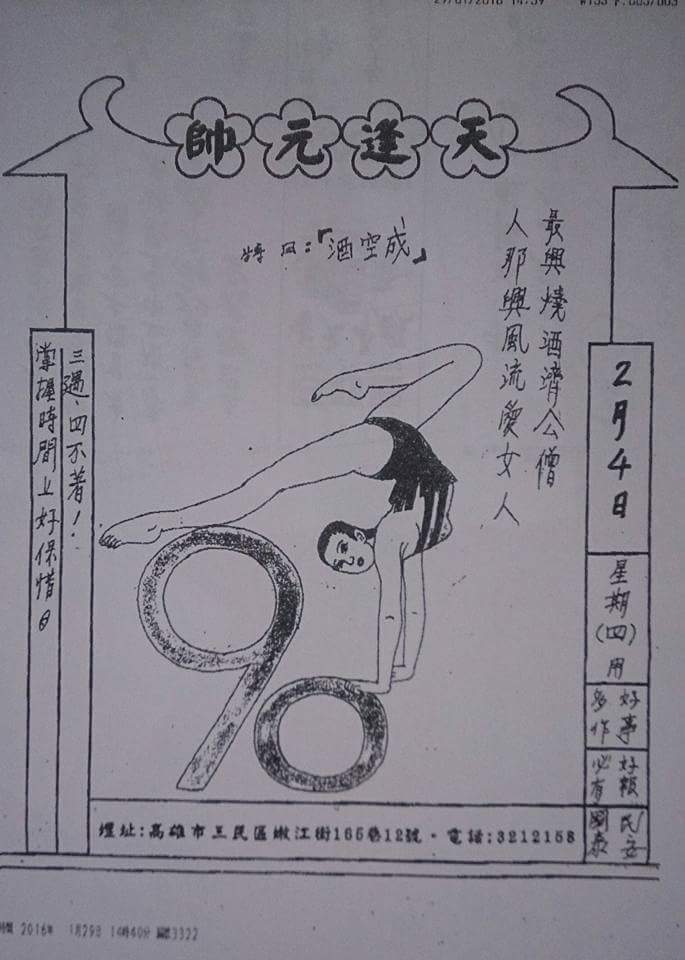 29/01/2016 14:39
天逢元帥
特四:「酒空成」
最興燒酒濟公僧
人那興風流愛女人
2月4日
星期(四)用
好事多作
好報必有
民安國泰
三遇四不著!
掌握時間上好保惜。
90
壇址:高雄市三民區嫩江街165巷12號。電話:3212158
2016年 1月29日 14時40分 3322